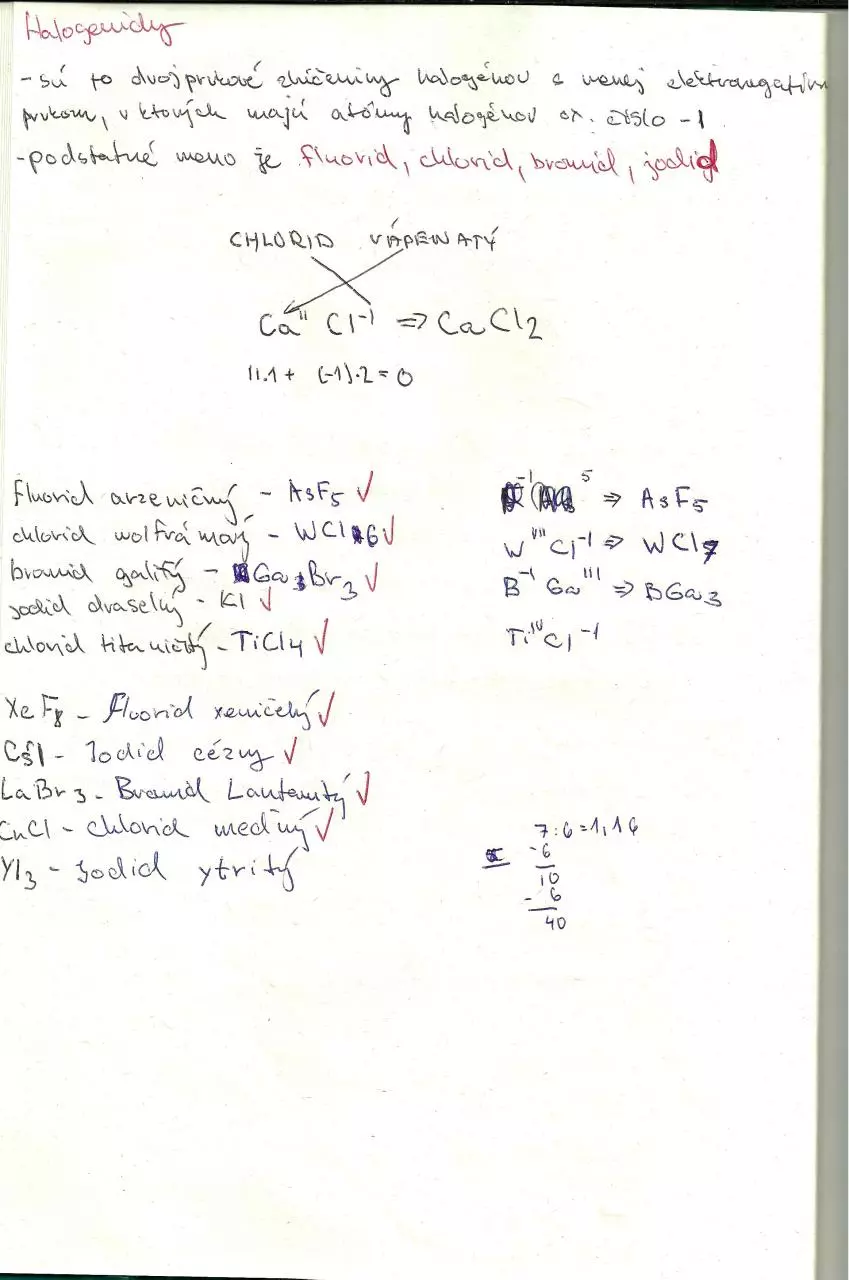 Halogenidy
- sú to dvojprvkové zlúčeniny halogénov s menej elektronegatívn
prvkom, v ktorých majú atómy halogénov ox. číslo -1
- podstatné meno je fluorid, chlorid, bromid, jodid
CHLORID VÁPENATÝ
Ca^II Cl^-1 => CaCl2
II.1 + (-1).2 = 0
fluorid arzeničný - AsF5 ✓
chlorid wolfrámový - WCl6 ✓
bromid galitý - GaBr3 ✓
jodid draselný - KI ✓
chlorid titaničitý - TiCl4 ✓
-1 5 => AsF5
W^VII Cl^-1 => WCl7
B^-1 Ga^III => BGa3
Ti^IV Cl^-1
XeF8 - Fluorid xeničelý ✓
CsI - Iodid cézny ✓
LaBr3 - Bromid Lantanitý ✓
CuCl - chlorid meďný ✓
YI3 - Jodid ytritý
7:6=1,16
-6
10
- 6
40